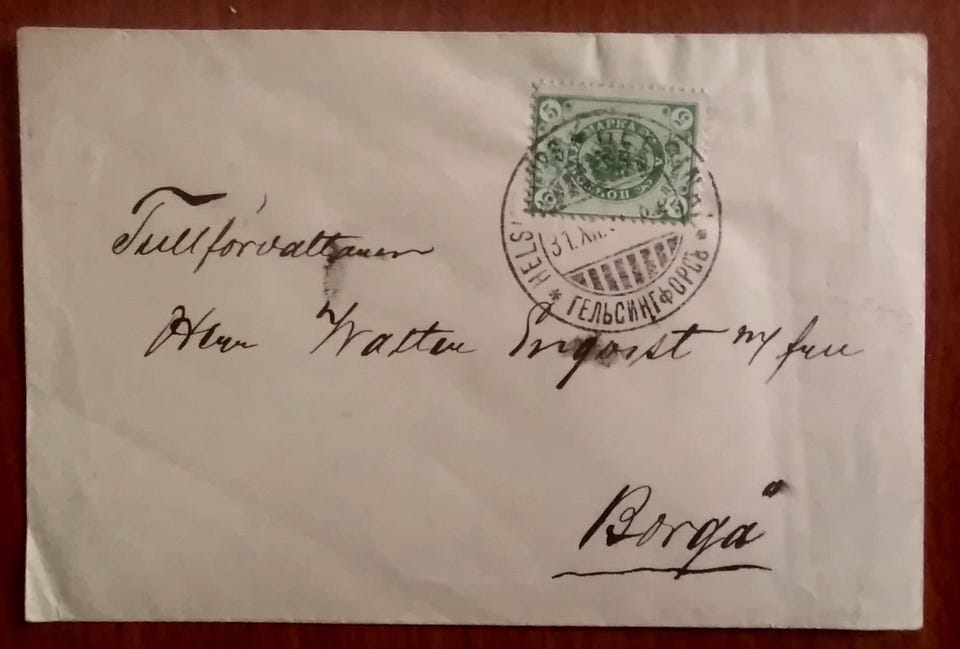 5 5
МАРКА
5 5
HELS
31.XII.
* ГЕЛЬСИНГФОРСЪ *
Tullförvaltaren
Herr Walter Enqvist m/fru
Borgå